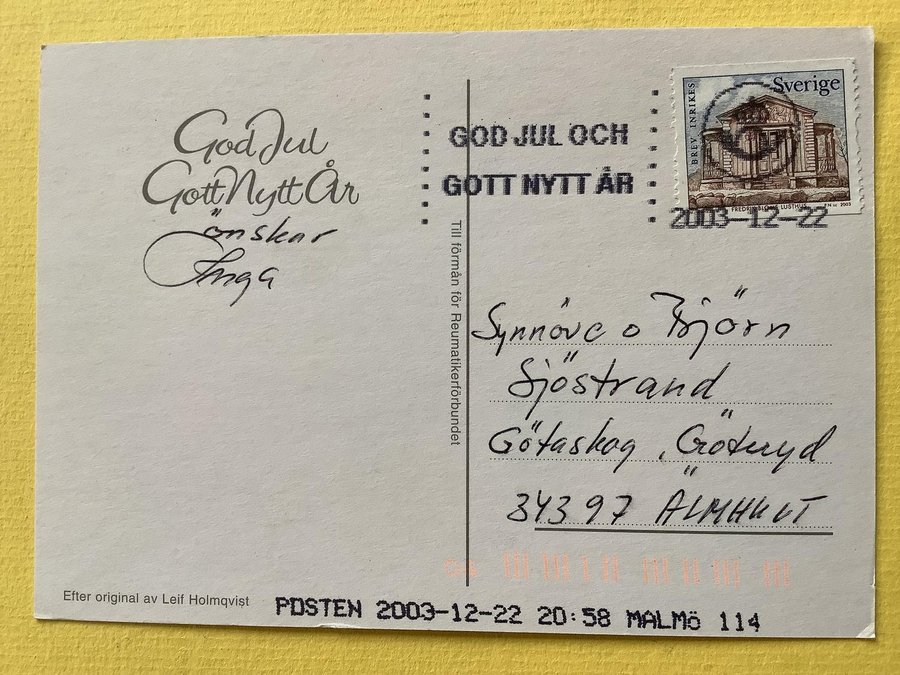 God Jul
Gott Nytt År
önskar
Inga
GOD JUL OCH
GOTT NYTT ÅR
BREV INRIKES
Sverige
FREDRIK BLOMS LUSTHUS
2003
2003-12-22
Till förmån för Reumatikerförbundet
Synnöve o Björn
Sjöstrand
Götaskog, Göteryd
34397 ÄLMHULT
Efter original av Leif Holmqvist
POSTEN 2003-12-22 20:58 MALMö 114